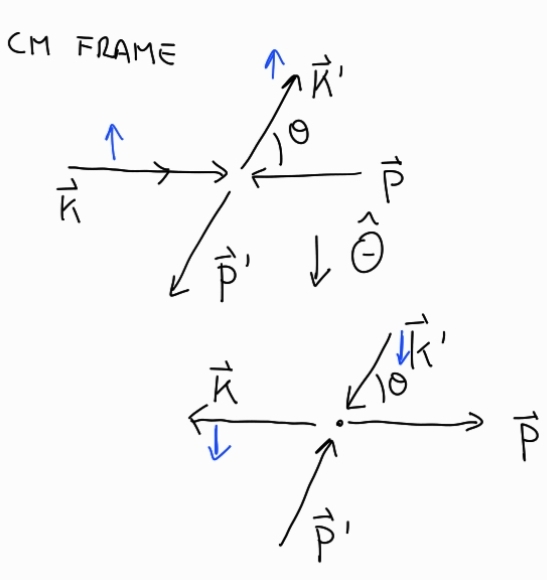 CM FRAME
K⃗'
θ
K⃗
P⃗
P⃗'
Θ̂
K⃗'
θ
K⃗
P⃗
P⃗'